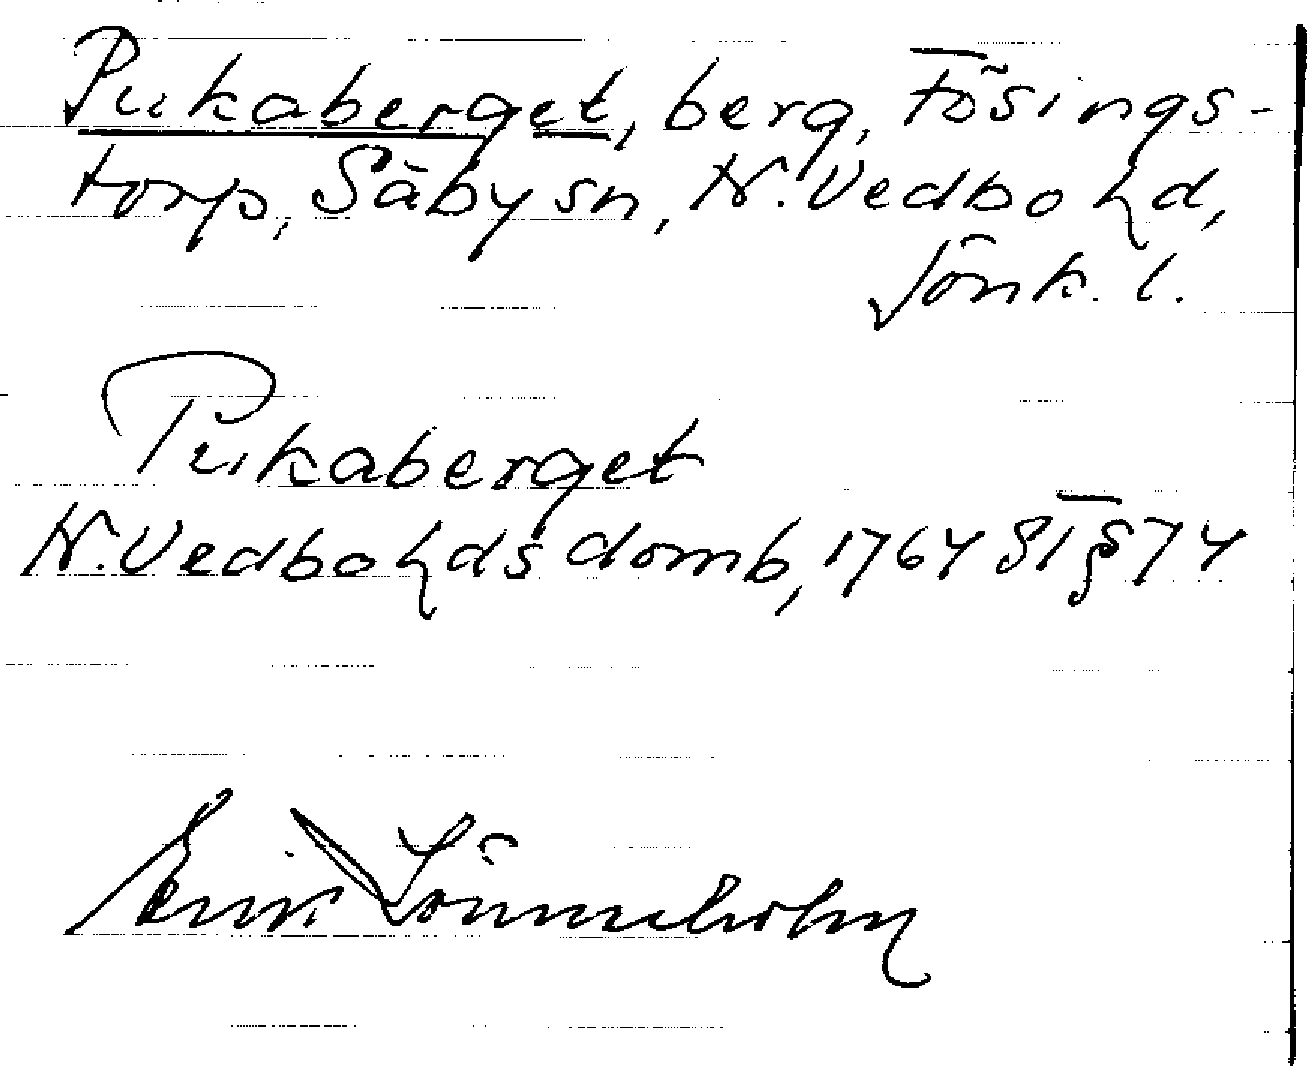 Pukaberget, berg, Fösings-
torp, Säby sn, N. Vedbo hd,
Jönk. l.
Pukaberget
N. Vedbo hds domb, 1764 81 § 74
Erik Lönneholm